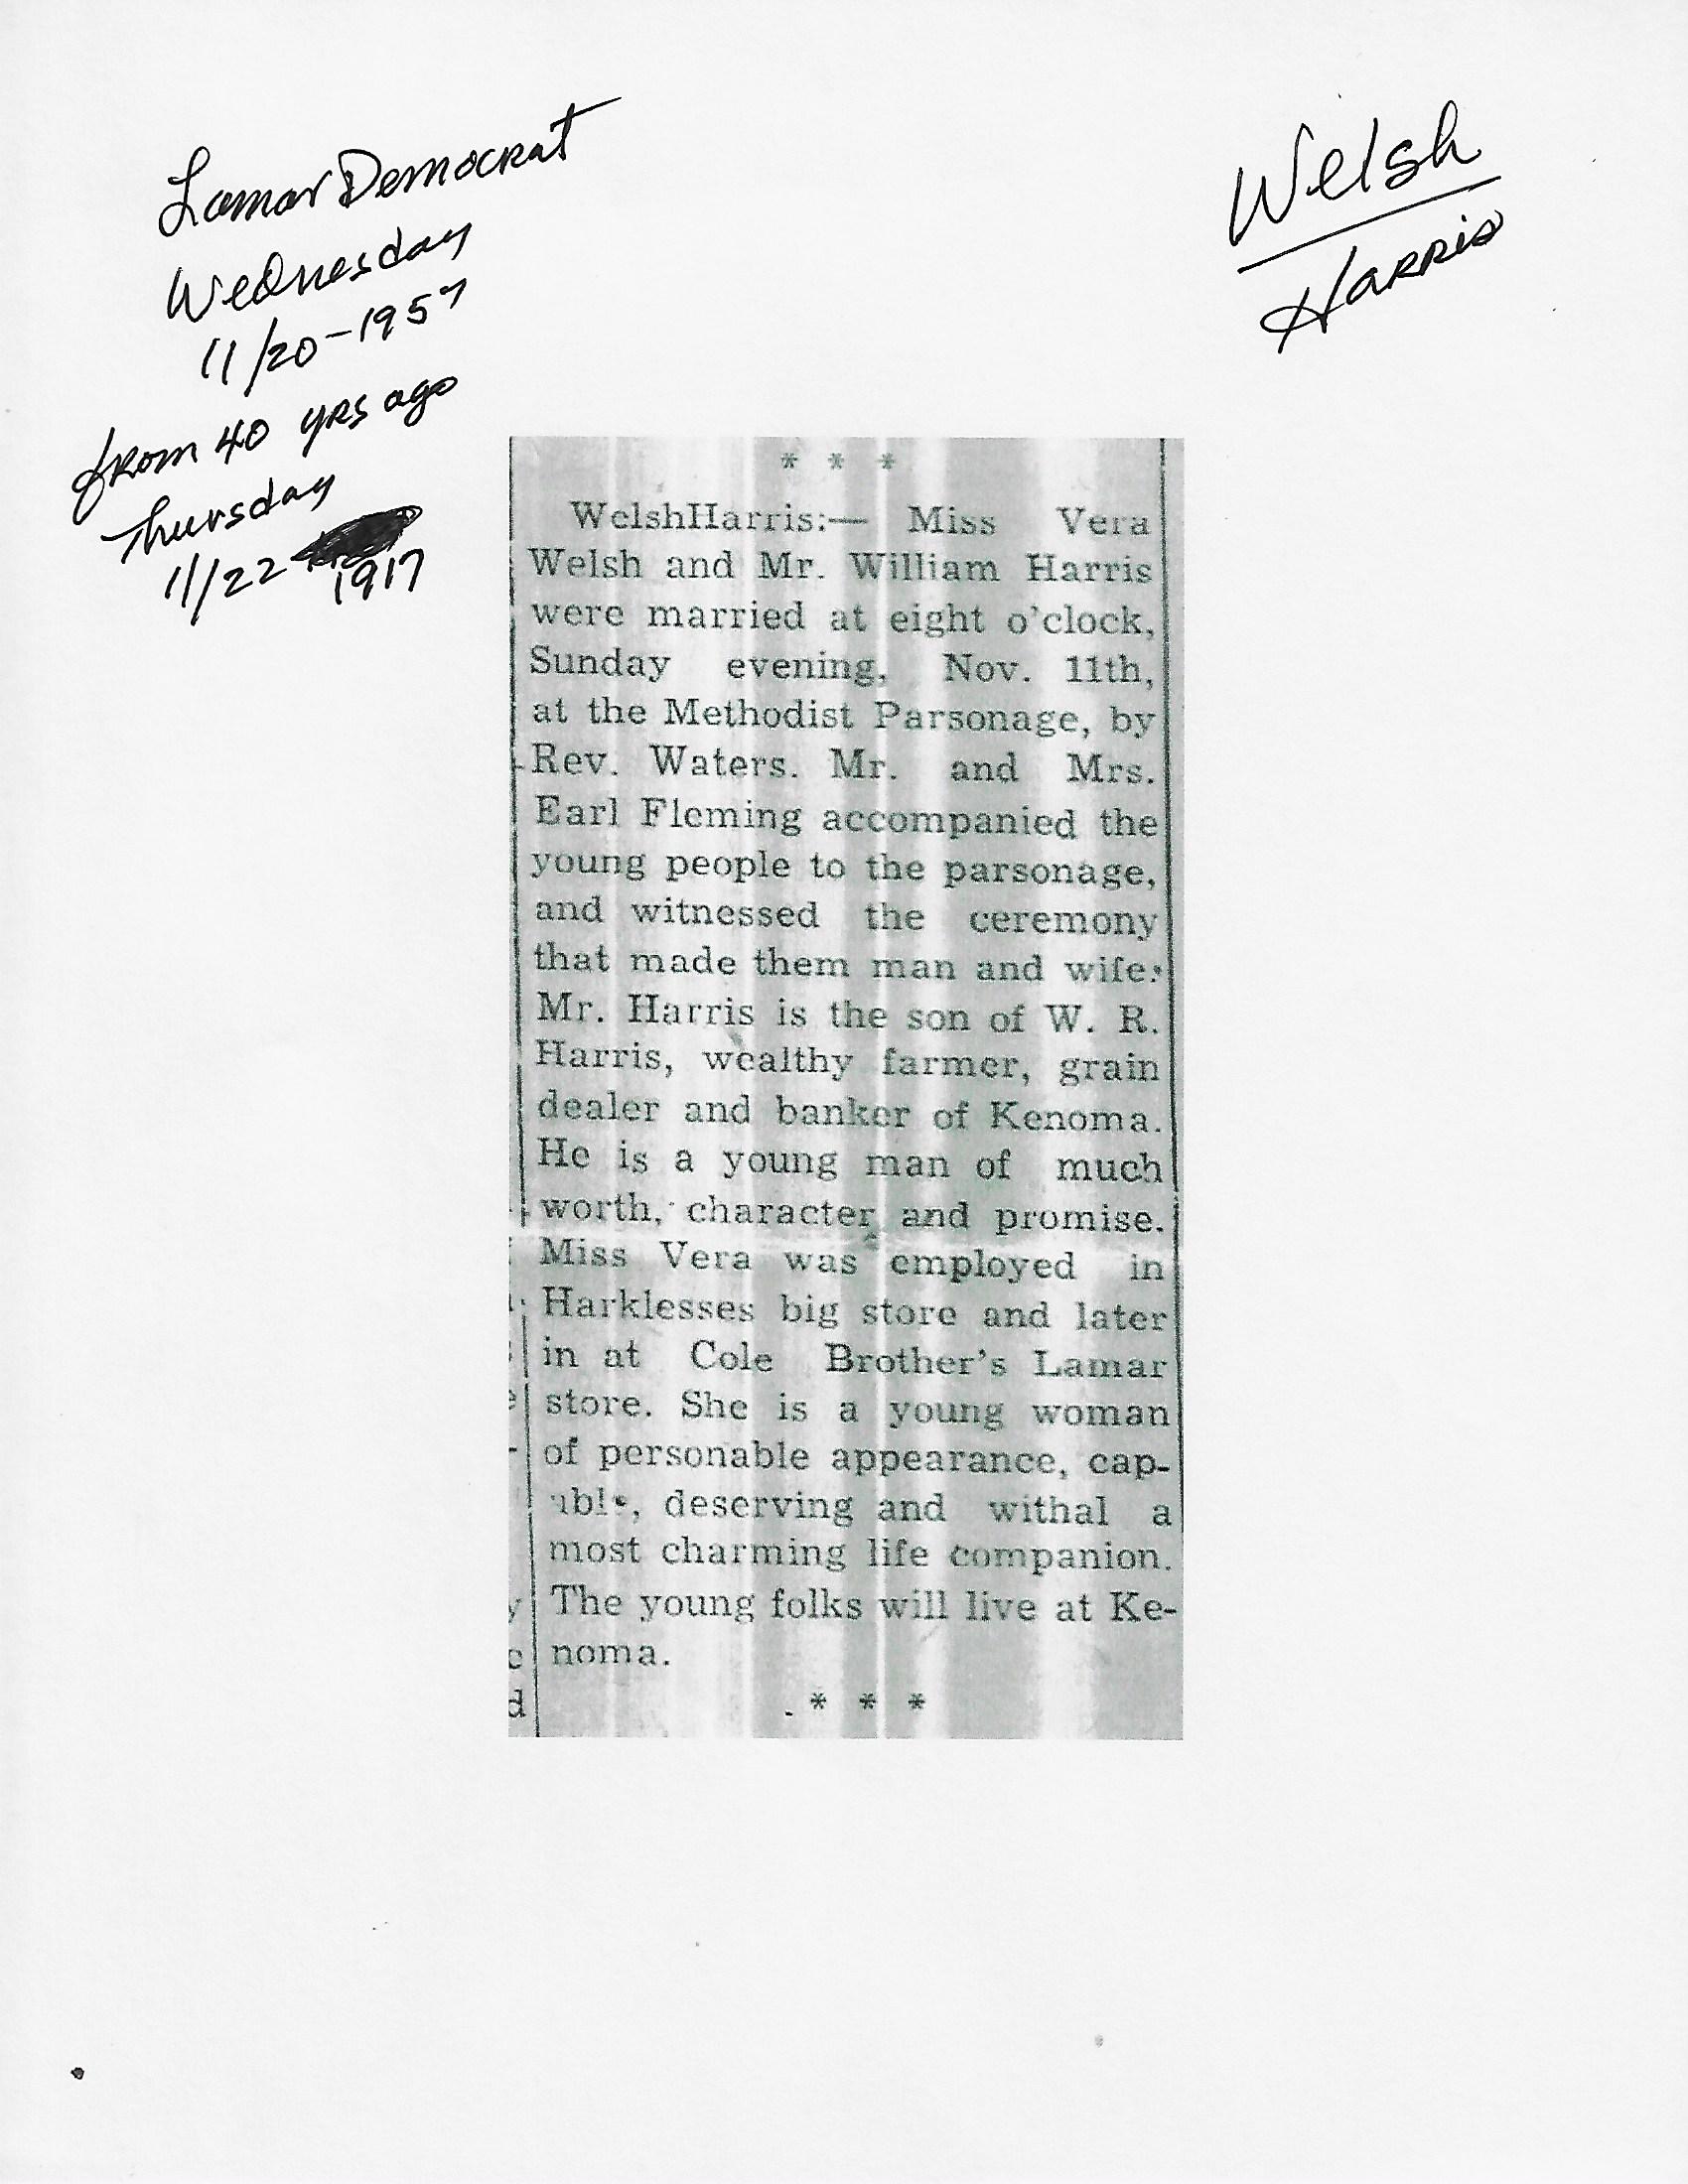 Lamar Democrat
Wednesday
11/20-1957
from 40 yrs ago
Thursday
11/22
1917
Welsh
Harris
* * *
WelshHarris:— Miss Vera
Welsh and Mr. William Harris
were married at eight o'clock,
Sunday evening, Nov. 11th,
at the Methodist Parsonage, by
Rev. Waters. Mr. and Mrs.
Earl Fleming accompanied the
young people to the parsonage,
and witnessed the ceremony
that made them man and wife.
Mr. Harris is the son of W. R.
Harris, wealthy farmer, grain
dealer and banker of Kenoma.
He is a young man of much
worth, character and promise.
Miss Vera was employed in
Harklesses big store and later
in at Cole Brother's Lamar
store. She is a young woman
of personable appearance, cap-
able, deserving and withal a
most charming life companion.
The young folks will live at Ke-
noma.
* * *